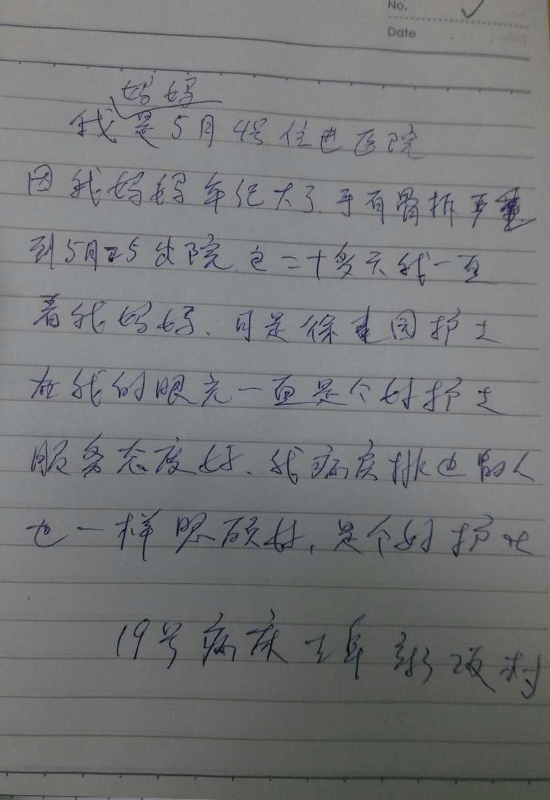 No.
Date
妈妈
我是5月4号住进医院
因我妈妈年纪大了.手有骨折严重
到5月25出院.这二十多天我一直
看我妈妈.可是徐建国护士
在我的眼光一直是个好护士
服务态度好.我病床排边的人
也一样照顾好,是个好护士
19号病床